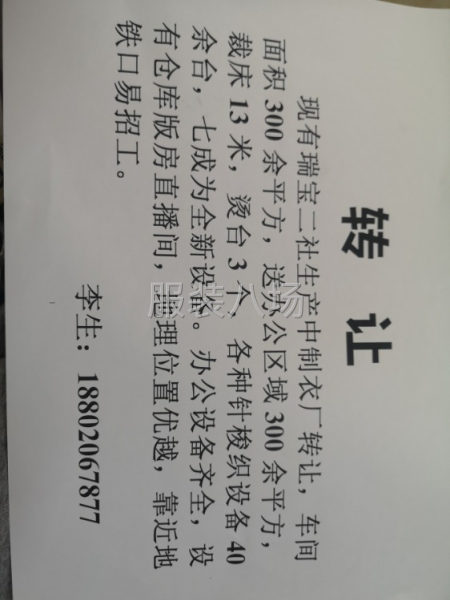 转 让
现有瑞宝二社生产中制衣厂转让，车间
面积 300 余平方，送办公区域 300 余平方，
裁床 13 米，烫台 3 个，各种针梭织设备 40
余台，七成为全新设备。办公设备齐全，设
有仓库版房直播间，地理位置优越，靠近地
铁口易招工。
李生：18802067877
服装人场